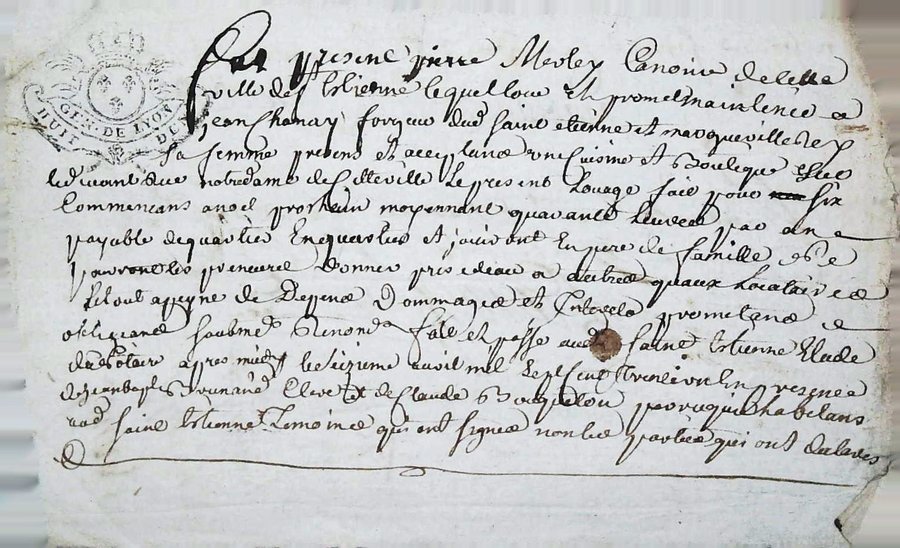 HUIT DEN
GEN. DE LYON
Fut present pierre Merley Canonier de cette
ville de St Estienne lequel loue et promet maintenir a
jean Chanay forgeur dud saint etienne et
sa femme presens et acceptans une Cuisine et Boutique
notredame de cetteville Le present Louage fait pour six
Commencans a noel prochain moyennant quarante Livres par an
payable de quartier En quartier et jouiront En pere de famille et ne
pourront les preneurs donner pres ne eau a autres quaux Locataires
Le tout a peyne de Depens Dommages et Interets promettans
obligeans soubmet Renon fait et passe aud saint Estienne Etude
du Notaire apres midy le sixieme avril mil sept cent trente En presence
de jean Clerc et de Claude perruquier habitans
aud saint Estienne temoins qui ont signes non les parties qui ont